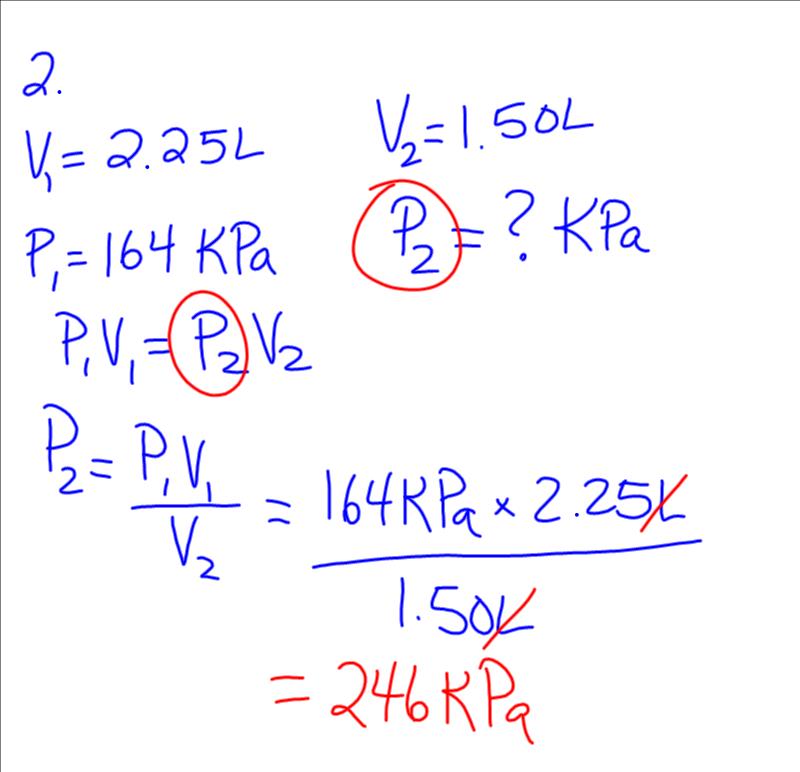 2.
V₁ = 2.25L
V₂ = 1.50L
P₁ = 164 KPa
P₂ = ? KPa
P₁V₁ = P₂V₂
P₂ = P₁V₁ / V₂ = 164KPa × 2.25L / 1.50L
= 246KPa